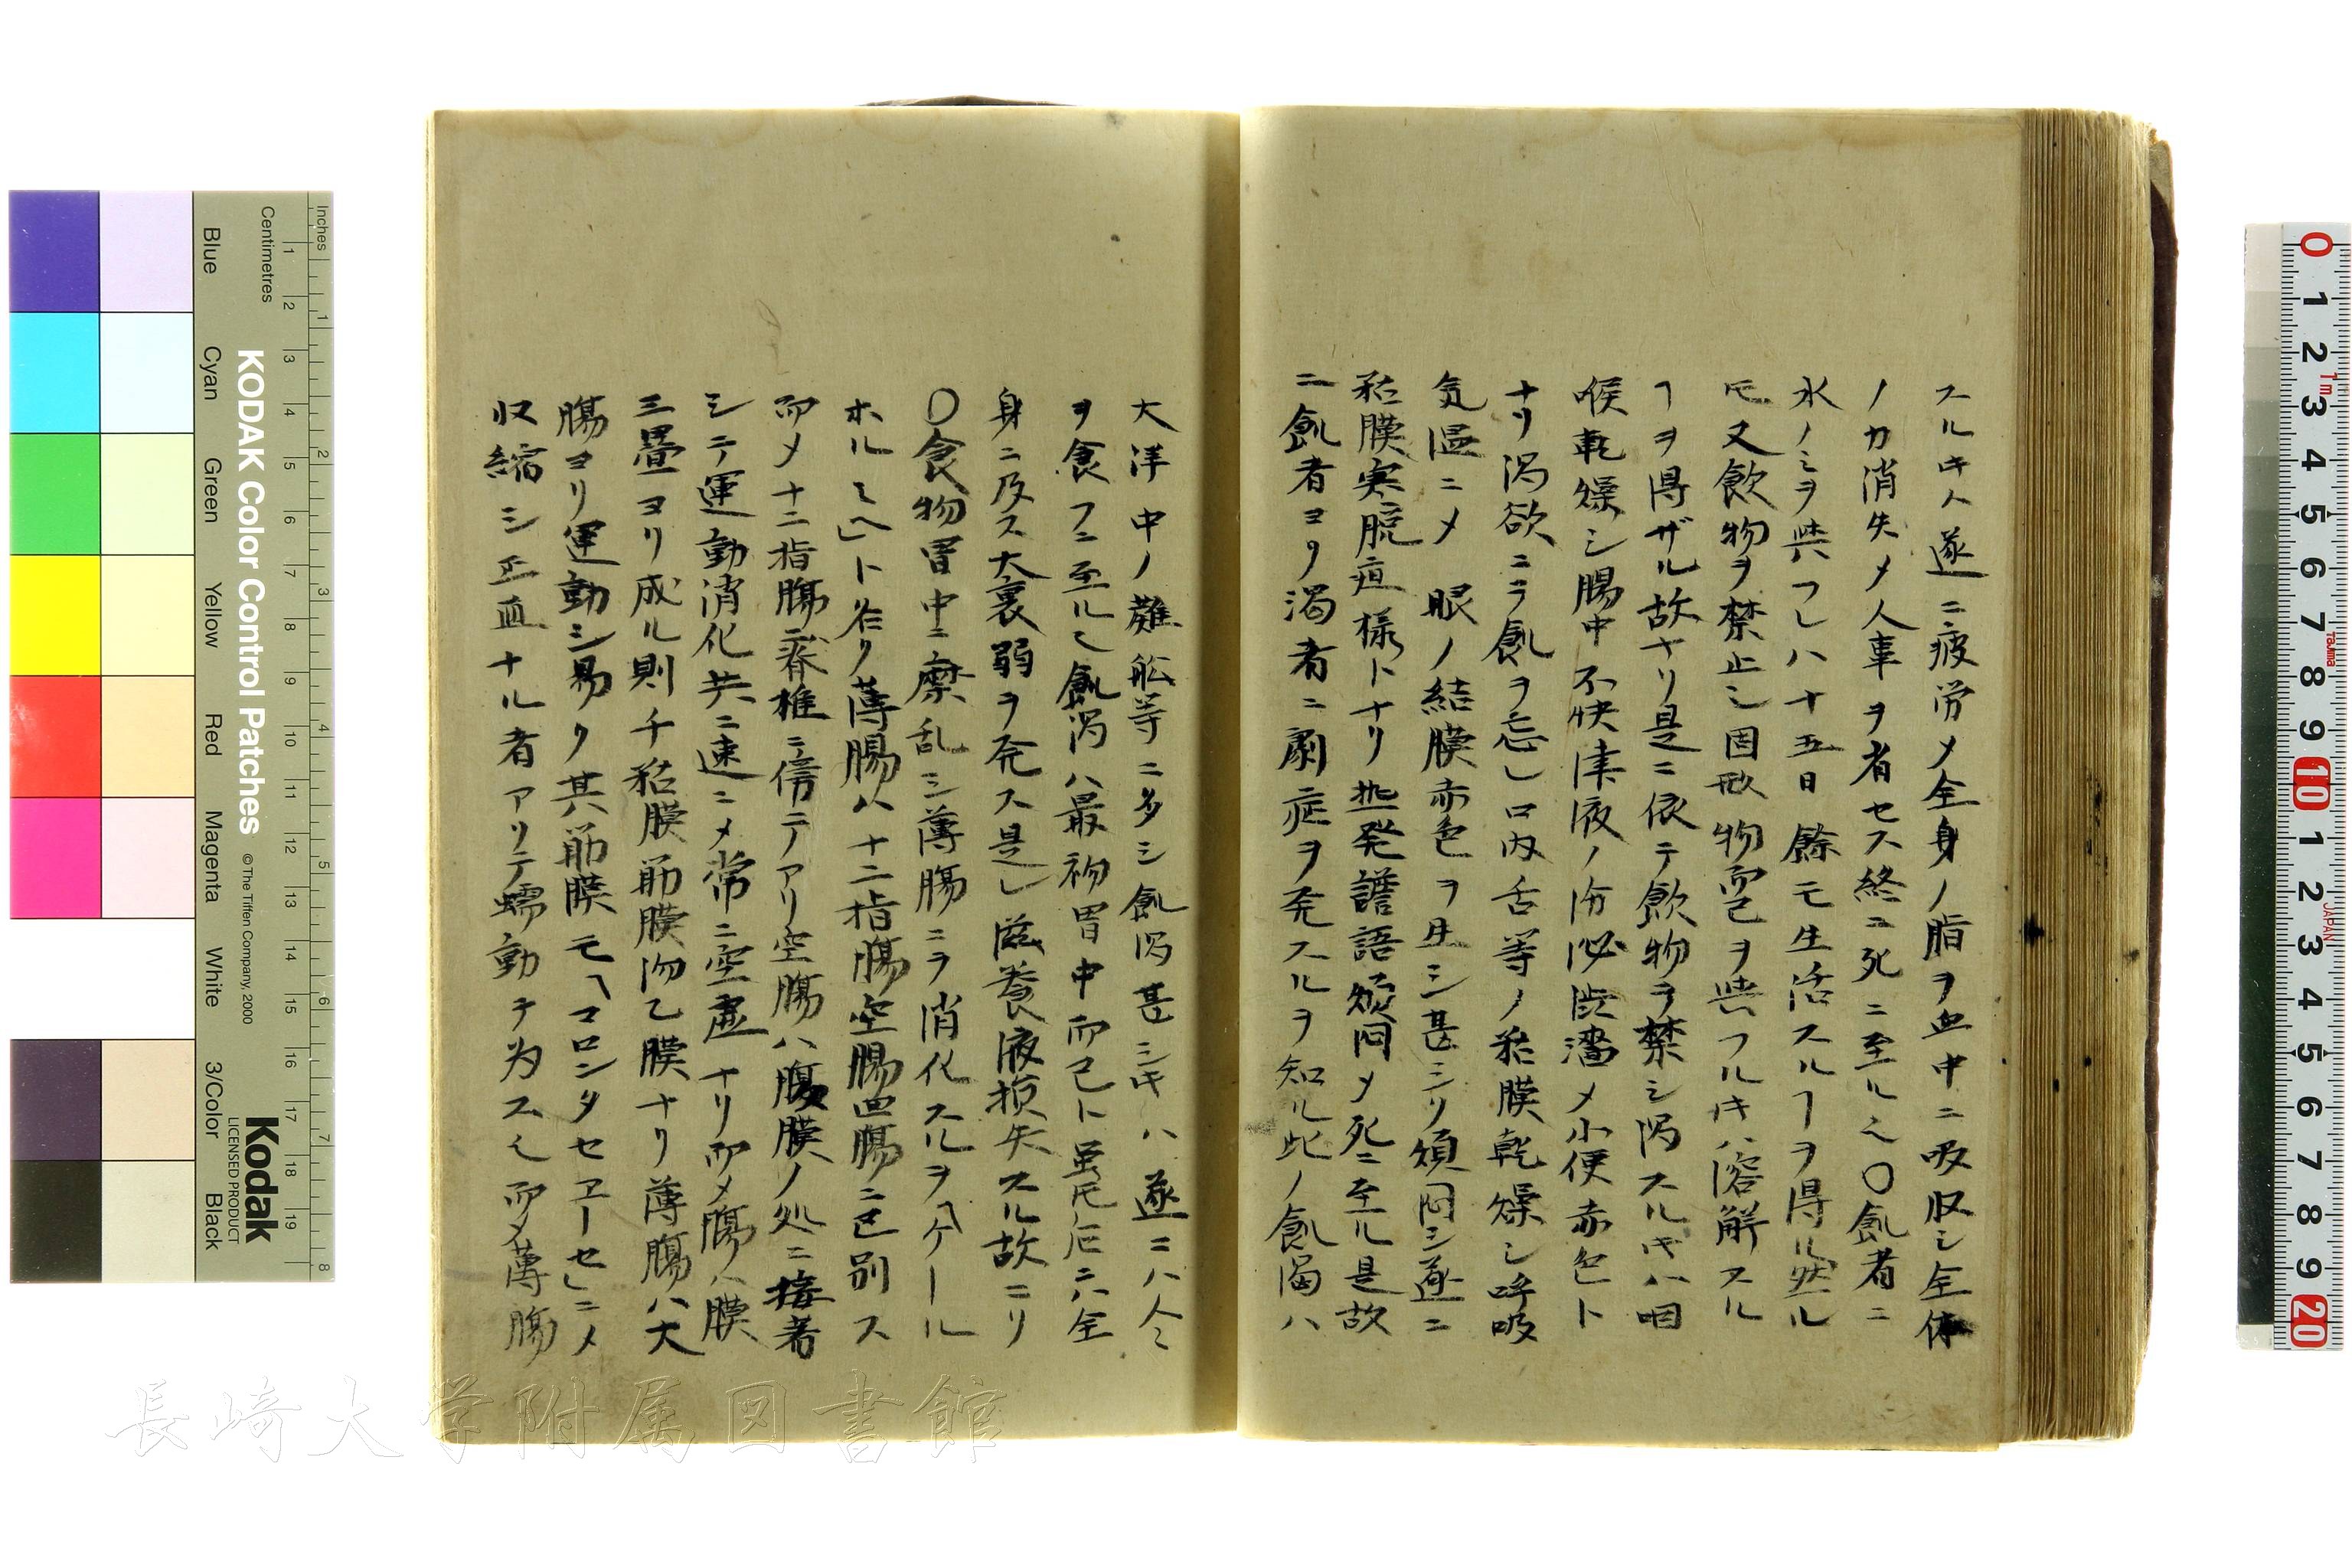 スルキハ遂ニ疲労メ全身ノ脂ヲ血中ニ吸収シ全体
ノ力消失メ人事ヲ省セス終ニ死ニ至ル也〇飢者ニ
水ノミヲ與フレハ十五日餘モ生活スルヿヲ得ル然ル
𪜈又飲物ヲ禁止シ固形物而已ヲ與フルキハ溶解スル
ヿヲ得ザル故ナリ是ニ依テ飲物ヲ禁シ渇スルキハ咽
喉乾燥シ腸中不快津液ノ分泌渋濇メ小便赤色ト
ナリ渇欲ニヲ飢ヲ忘レ口内舌等ノ粘膜乾燥シ呼吸
気温ニメ眼ノ結膜赤色ヲ生シ甚シリ煩悶シ遂ニ
粘膜寒脱疽様ト十リ 発譫語煩悶メ死ニ至ル是故
ニ飢者ヨリ渇者ニ劇症ヲ発スルヲ知ル此ノ飢渇ハ
大洋中ノ難舩等ニ多シ飢渇甚シキハ遂ニハ人々
ヲ食フニ至ル也飢渇ハ最初胃中而已ト虽𪜈后ニハ全
身ニ及ス大衰弱ヲ発ス是レ滋養液損失スル故ニリ
〇食物胃中ニ糜乱シ薄腸ニヲ消化スルヲ「ケール
ホルミヘ」ト名ク薄腸ハ十二指腸空腸回腸ニ区別ス
而メ十二指腸ハ脊椎ニ傍テアリ空腸ハ腹膜ノ処ニ接着
シテ運動消化共ニ速ニメ常ニ空虚ナリ而メ腸ハ膜
三畳ヨリ成ル則チ粘膜筋膜沕乙膜ナリ薄腸ハ大
腸ヨリ運動シ易ク其筋膜モ「マロンタセヱーセ」ニメ
収縮シ正直ナル者アリテ蠕動ヲ為ス也而メ薄腸
長崎大学附属図書館
KODAK Color Control Patches
© The Tiffen Company, 2000
Kodak
LICENSED PRODUCT
Inches
Centimetres
Blue
Cyan
Green
Yellow
Red
Magenta
White
3/Color
Black
1 2 3 4 5 6 7 8 9 10 11 12 13 14 15 16 17 18 19
1 2 3 4 5 6 7 8
0 1 2 3 4 5 6 7 8 9 10 1 2 3 4 5 6 7 8 9 20
Tajima
JAPAN